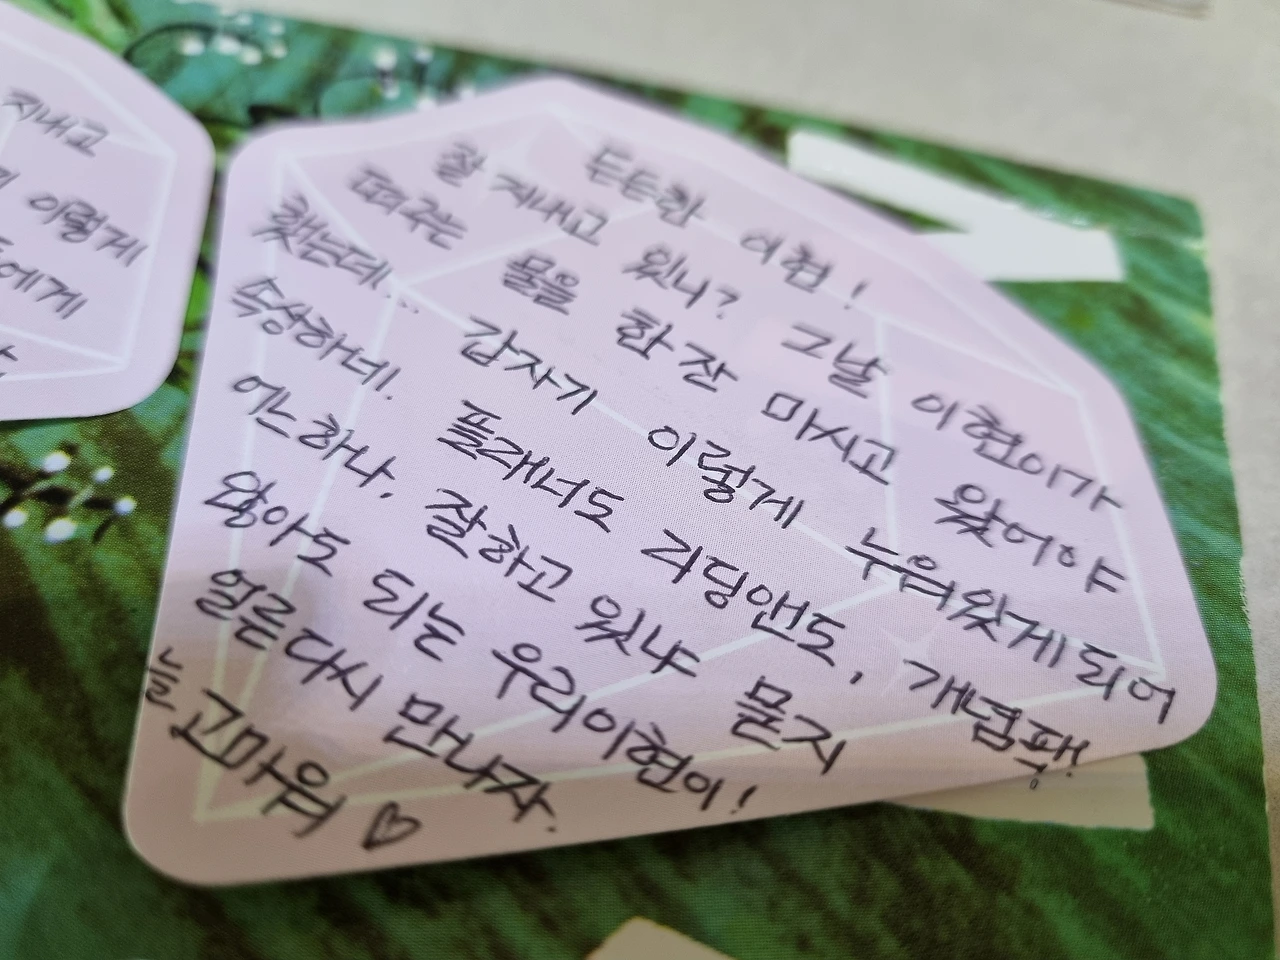 지내고
이렇게
에게
든든한 이현!
잘 지내고 있니? 그날 이현이가
떠주는 물을 한 잔 마시고 왔어야
했는데.. 갑자기 이렇게 누워있게 되어
속상하네. 플래너도 리딩앤도, 개념팩!
어느하나, 잘하고 있냐 묻지
않아도 되는 우리이현이!
얼른다시 만나자.
늘 고마워 ♡